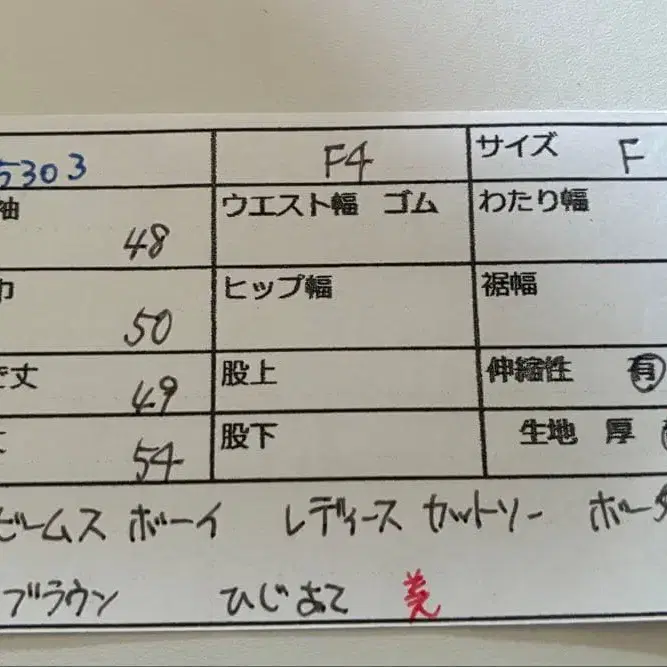 5303 F4 サイズ F
袖 48 ウエスト幅 ゴム わたり幅
巾 50 ヒップ幅 裾幅
丈 49 股上 伸縮性 有
54 股下 生地 厚
ビームス ボーイ レディース カットソー ボーダ
ブラウン ひじあて 美